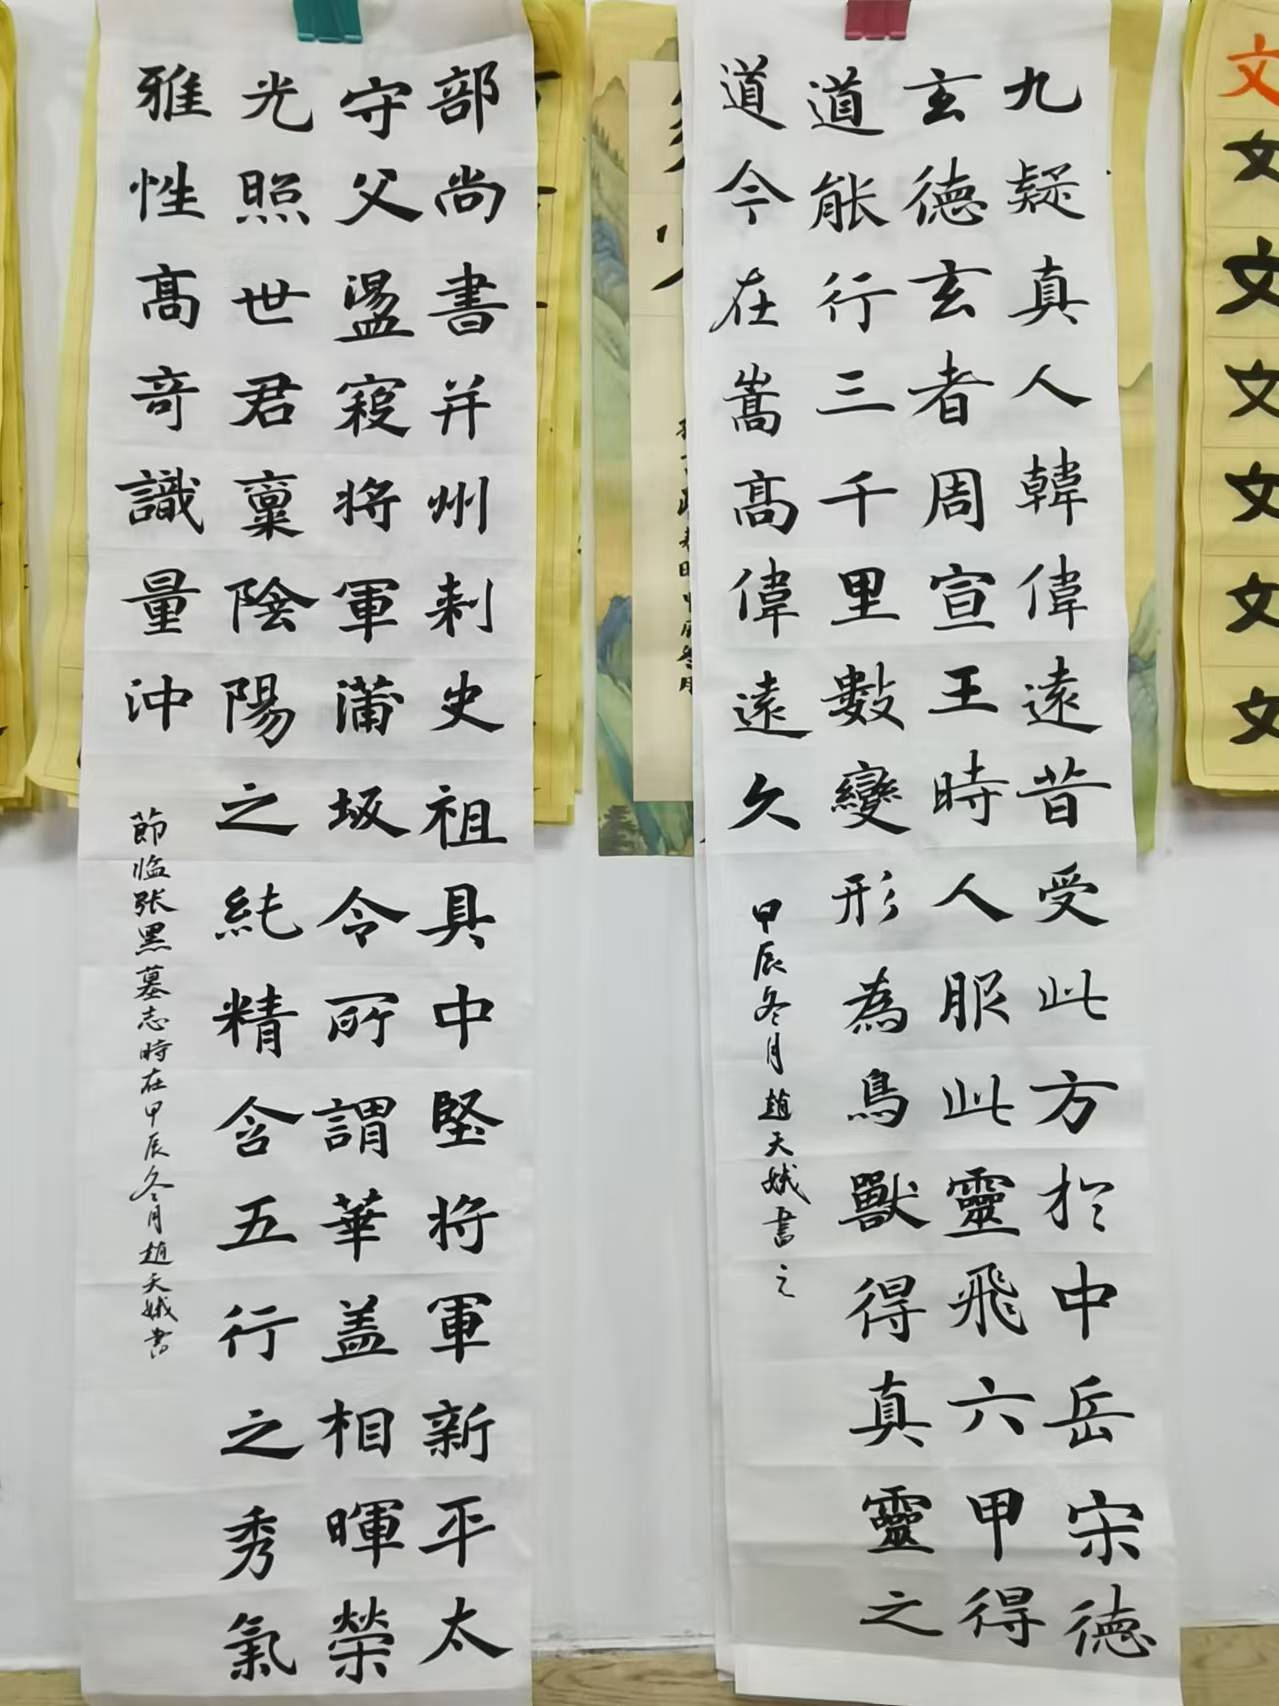 九疑真人韓偉遠昔受此方於中岳宋德
玄德玄者周宣王時人服此靈飛六甲得
道能行三千里數變形為鳥獸得真靈之
道今在嵩高偉遠久
甲辰冬月趙天娥書之
部尚書并州刺史祖具中堅将軍新平太
守父盪寇将軍蒲坂令所謂華盖相暉榮
光照世君稟陰陽之純精含五行之秀氣
雅性高奇識量沖
節临张黑墓志時在甲辰冬月趙天娥書
文
文
文
文
文
文
文